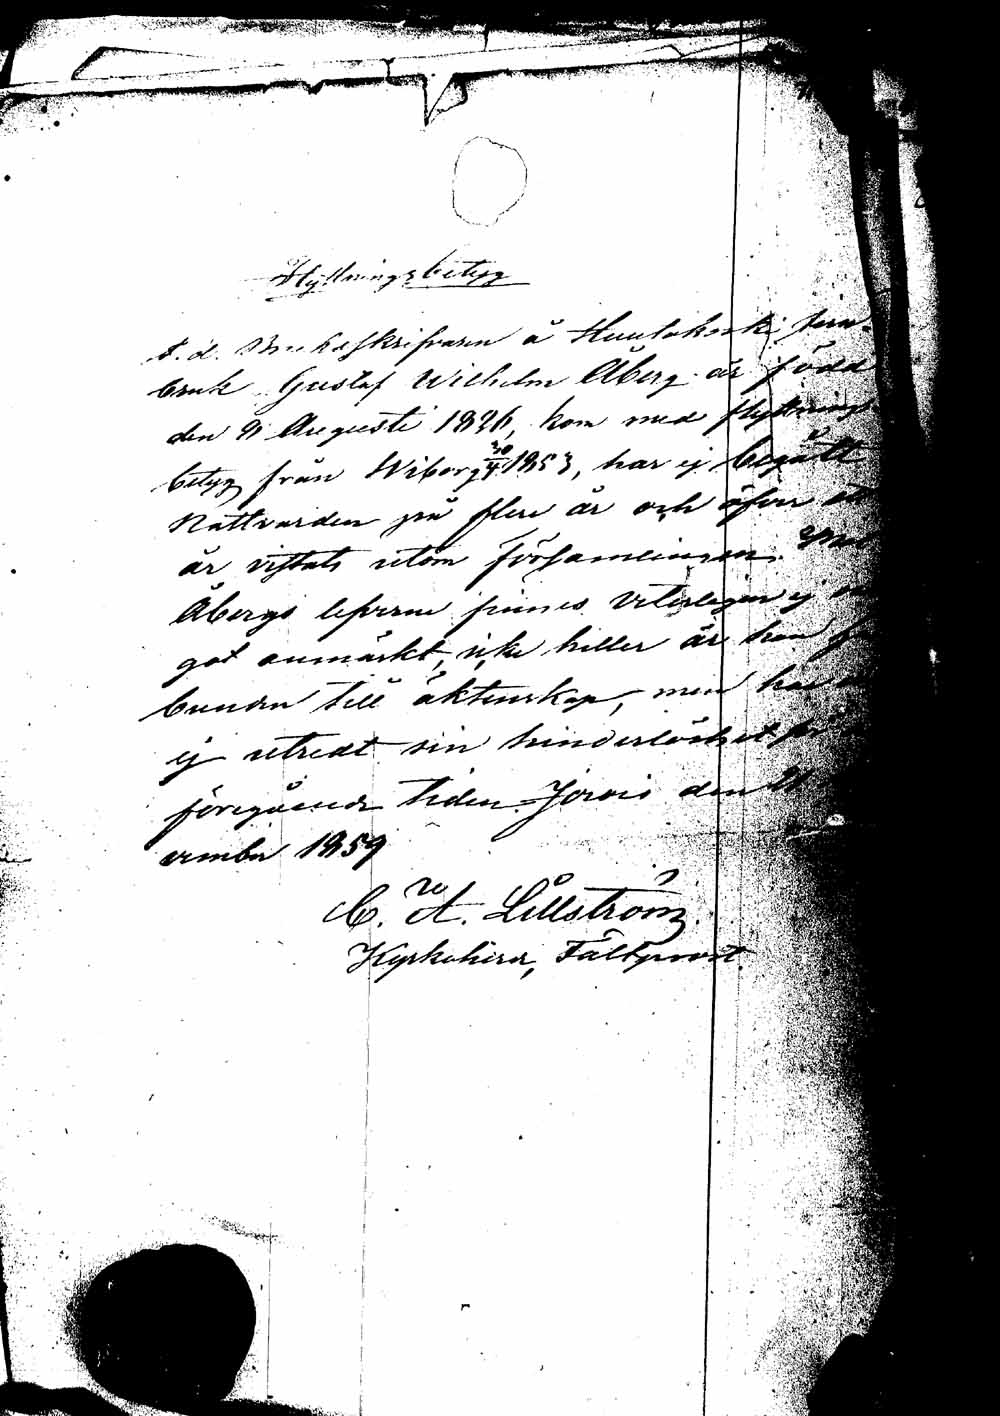 Flyttningsbetyg
f. d. Bruksskrifvaren å Huutokoski jern-
bruk Gustaf Wilhelm Åberg är född
den 9 Augusti 1826, kom med flyttnings-
betyg från Wiborg 30/4 1853, har ej begått
Nattvarden på flere år och öfver ett
år vistats utom församlingen.
Åbergs lefverne finnes veterligen ej
got anmärkt, icke heller är han
bunden till äktenskap, men har
ej utredt sin hinderlöshet för
föregående tiden. Jorois den 21
vember 1859
C. A. Lillström
Kyrkoherde, Fältprost.